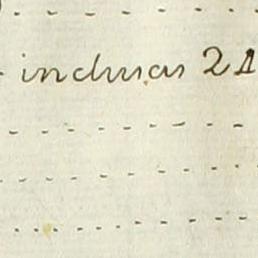 inclusas 21